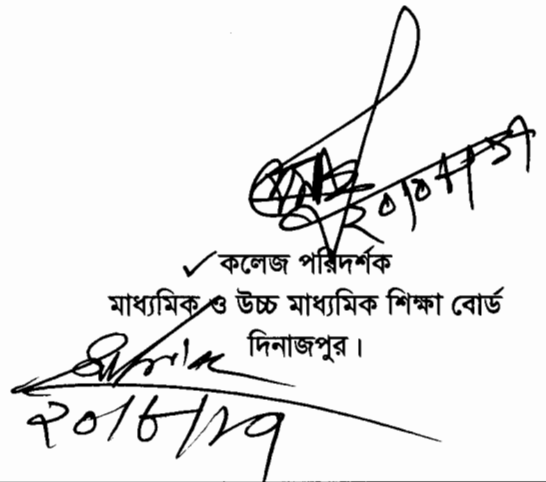 ✓ কলেজ পরিদর্শক
মাধ্যমিক ও উচ্চ মাধ্যমিক শিক্ষা বোর্ড
দিনাজপুর।
২০/৮/১৭